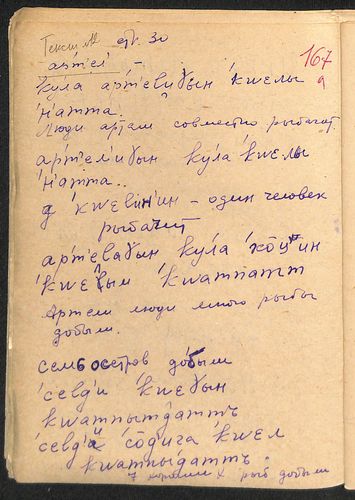 Текст №2 стр. 30
167
арт'ел' –
а
кула арт'евиɣын 'кжелы
'н'атта.
Люди артели совместно рыбачат
арт'ел'иɣын ку́ла 'кжелы
'н'атта..
'кжеlн'ин – один человек
рыбачит
арт'еваɣын ку́ла
'кже́ɣын 'кжатпатт
Артели люди много рыбы
добыли.
семь осетров добыли
'сев,ди 'кжеɣын
кжатпытдаттъ
'сев,д'а 'со̄д'ига 'кжел
кжатпыдаттъ.
7 хороших рыб добыли